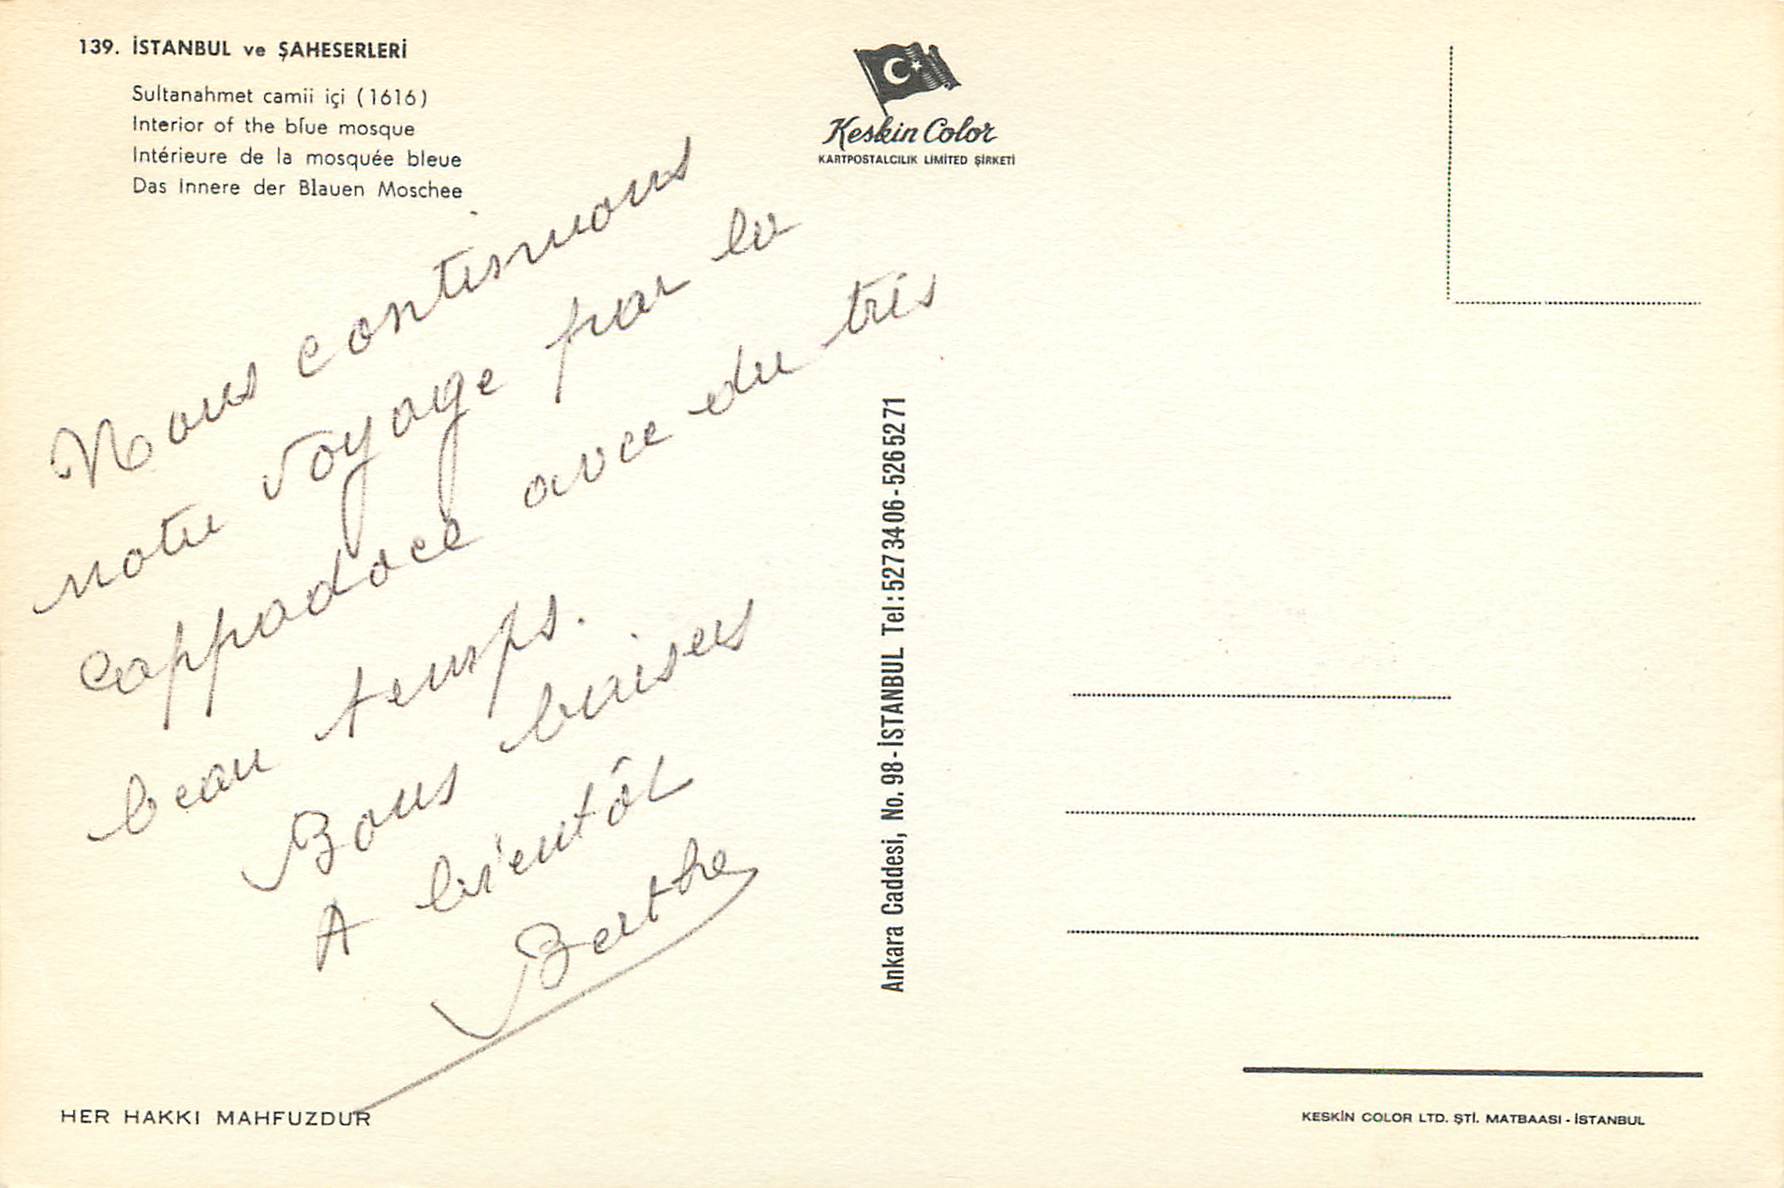 139. İSTANBUL ve ŞAHESERLERİ
Sultanahmet camii içi (1616)
Interior of the blue mosque
Intérieure de la mosquée bleue
Das Innere der Blauen Moschee
Keskin Color
KARTPOSTALCILIK LİMİTED ŞİRKETİ
Nous continuons
notre voyage par la
Cappadoce avec du très
beau temps.
Bons baisers
A bientôt
Berthe
Ankara Caddesi, No. 98 - İSTANBUL Tel: 527 34 06 - 526 52 71
HER HAKKI MAHFUZDUR
KESKİN COLOR LTD. ŞTİ. MATBAASI - İSTANBUL